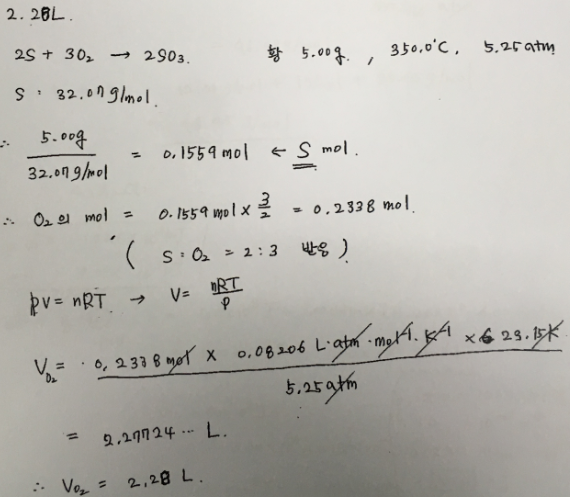 2.28L.
2S + 3O₂ → 2SO₃. 황 5.00g. , 350.0°C, 5.25 atm
S : 32.07 g/mol.
∴ 5.00g / 32.07 g/mol = 0.1559 mol ← S mol.
∴ O₂의 mol = 0.1559 mol × 3/2 = 0.2338 mol.
( S : O₂ = 2 : 3 반응 )
PV = nRT → V = nRT / P
V_O₂ = 0.2338 mol × 0.08206 L·atm·mol⁻¹·K⁻¹ × 623.15K / 5.25 atm
= 2.27724 ··· L.
∴ V_O₂ = 2.28 L.